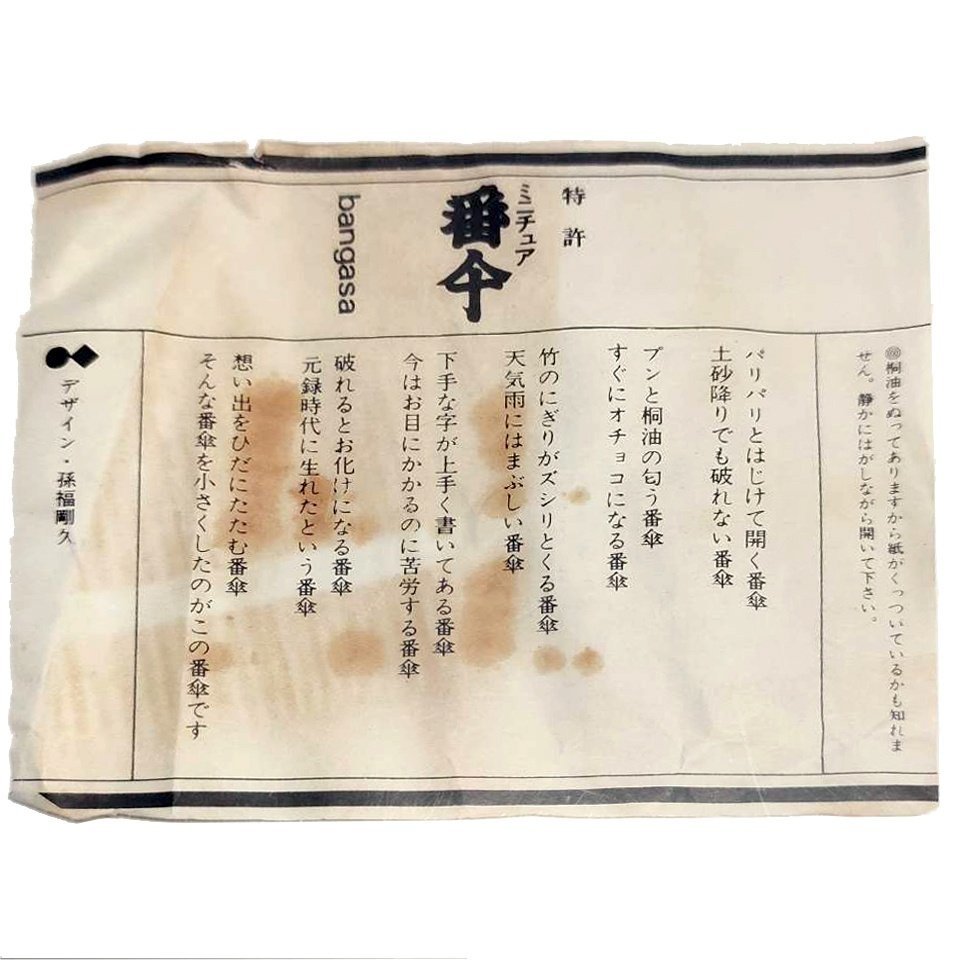 特許
ミニチュア
番傘
bangasa
桐油をぬってありますから紙がくっついているかも知れま
せん。静かにはがしながら開いて下さい。
バリバリとはじけて開く番傘
土砂降りでも破れない番傘
プンと桐油の匂う番傘
すぐにオチョコになる番傘
竹のにぎりがズシリとくる番傘
天気雨にはまぶしい番傘
下手な字が上手く書いてある番傘
今はお目にかかるのに苦労する番傘
破れるとお化けになる番傘
元録時代に生れたという番傘
想い出をひだにたたむ番傘
そんな番傘を小さくしたのがこの番傘です
デザイン・孫福剛久